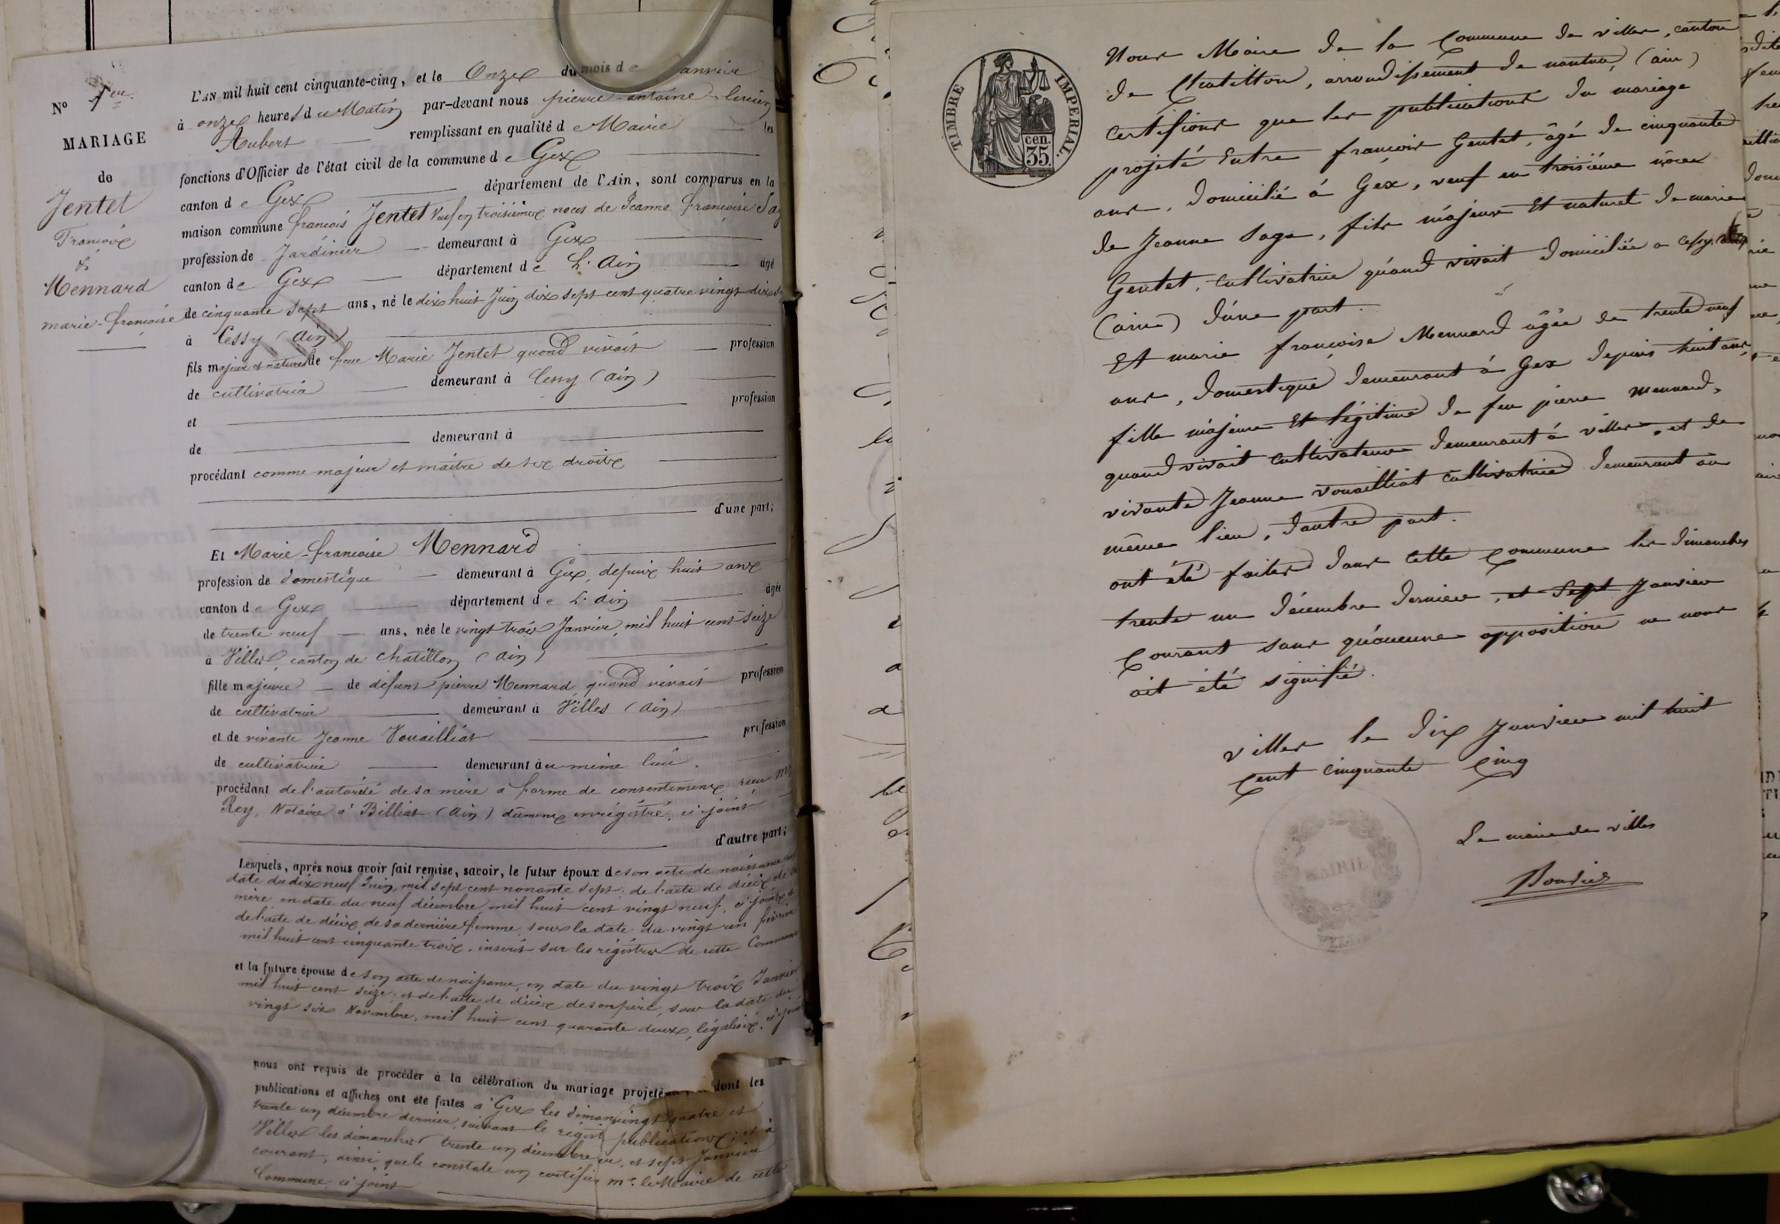 N° 1er
MARIAGE
de
Jentet
François
&
Mennard
marie-françoise
L'AN mil huit cent cinquante-cinq, et le Onze du mois de Janvier
à onze heures du Matin par-devant nous pierre antoine
Aubert remplissant en qualité de Maire les
fonctions d'Officier de l'état civil de la commune de Gex
canton de Gex département de l'Ain, sont comparus en la
maison commune françois Jentet Veuf en troisième noces de Jeanne françoise
profession de Jardinier demeurant à Gex
canton de Gex département de L'Ain âgé
de cinquante sept ans, né le dix huit Juin dix sept cent quatre vingt dix
à Cessy (Ain)
fils majeur et naturel de feue Marie Jentet quand vivait profession
de cultivatrice demeurant à Cessy (Ain)
et profession
de demeurant à
procédant comme majeur et maître de ses droits
d'une part;
Et Marie-françoise Mennard
profession de domestique demeurant à Gex, depuis huit ans
canton de Gex département de L'Ain âgée
de trente neuf ans, née le vingt trois Janvier, mil huit cent seize
à Villes, canton de Chatillon (Ain)
fille majeure de défunt pierre Mennard, quand vivait profession
de cultivateur demeurant à Villes (Ain)
et de vivante Jeanne Vouailliat profession
de cultivatrice demeurant au même lieu.
procédant de l'autorité de sa mère à forme de consentement
Rey, Notaire à Billiat (Ain) dûment enrégistré, ci-joint
d'autre part;
Lesquels, après nous avoir fait remise, savoir, le futur époux de son acte de naissance
date du dix neuf Juin, mil sept cent nonante sept, de l'acte de décès de sa
mère en date du neuf décembre mil huit cent vingt neuf, ci joint
de l'acte de décès de sa dernière femme, sous la date du vingt un février
mil huit cent cinquante trois, inscrit sur les régistres de cette Commune
et la future épouse de son acte de naissance, en date du vingt trois Janvier
mil huit cent seize, et de l'acte de décès de son père, sous la date du
vingt six Novembre, mil huit cent quarante deux, légalisé, ci joint
nous ont requis de procéder à la célébration du mariage projeté dont les
publications et affiches ont été faites à Gex les dimanches vingt quatre et
trente un décembre dernier, suivant le régistre publications; et à
Villes les dimanches trente un décembre et sept Janvier
courant, ainsi que le constate un certificat mr. le Maire de cette
Commune ci joint
TIMBRE IMPERIAL.
35 cen.
Nous Maire de la Commune de villes, canton
de Chatillon, arrondissement de nantua, (ain)
certifions que les publications du mariage
projeté Entre françois Gentet, âgé de cinquante
ans, domicilié à Gex, veuf en troisième noces
de Jeanne Sage, fils majeur et naturel de marie
Gentet, cultivatrice quand vivait domiciliée a Cessy
(ain) d'une part.
Et marie françoise Mennard âgée de trente neuf
ans, domestique demeurant à Gex depuis huit ans,
fille majeure Et légitime de feu pierre mennard,
quand vivait cultivateur demeurant à villes, et de
vivante Jeanne vouailliat cultivatrice demeurant au
même lieu, d'autre part.
ont été faites dans cette Commune les dimanches
trente un décembre dernier, et sept Janvier
Courant sans qu'aucune opposition ne nous
ait été signifié.
villes le dix Janvier mil huit
Cent cinquante Cinq
Le maire de villes
MAIRIE